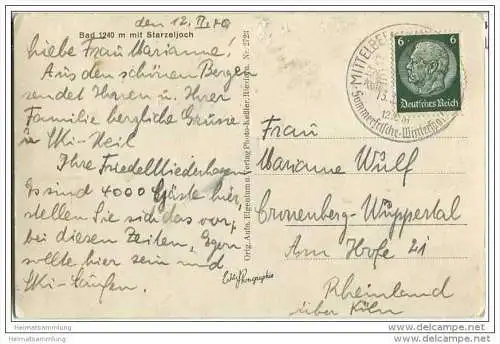 den 12. II. 40
Bad 1240 m mit Starzeljoch
Liebe Frau Marianne!
Aus den schönen Bergen
sendet Ihnen u. Ihrer
Familie herzliche Grüsse
u Ski-Heil
Ihre Friedel
Es sind 4000 Gäste hier,
stellen Sie sich das vor,
bei diesen Zeiten, Egon
sollte hier sein und
Ski-laufen.
Echte Photographie
Orig. Aufn. Eigentum u. Verlag Photo-Keßler, Riezlern. Nr. 2723
MITTELBERG
Sommerfrische-Wintersport
6 6
Deutsches Reich
Frau
Marianne Wulf
Cronenberg-Wuppertal
Am Hofe 21
Rheinland
über Köln
Heimatsammlung
Heimatsammlung.de
Heimatsammlung
Heimatsammlung.de